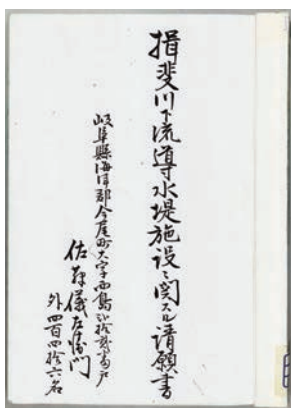 揖斐川下流導水堤施設ニ関スル請願書
岐阜縣海津郡今尾町大字西島弐拾弐番戸
佐藤儀左衛門
外四百四拾六名